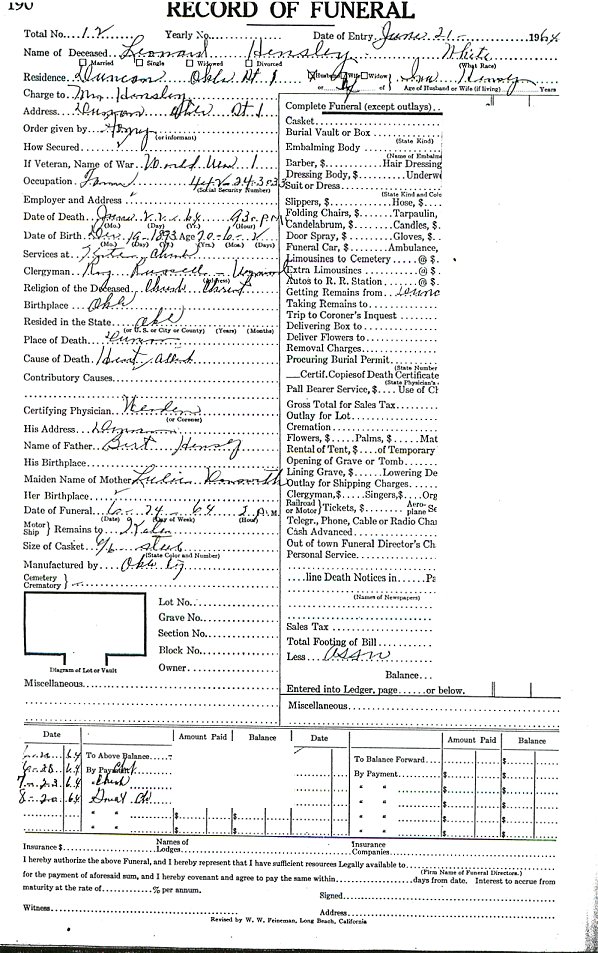 190
RECORD OF FUNERAL
Total No. 12 Yearly No. Date of Entry June 21 1964
Name of Deceased Leonard Hensley White
Married Single Widowed Divorced (What Race)
Residence Duncan Okla Rt 1 Husband Wife Widow Hensley
or of Age of Husband or Wife (if living) Years
Charge to Mrs Hensley
Address Duncan Okla Rt 1
Order given by
(or informant)
How Secured
If Veteran, Name of War World War 1
Occupation Farmer
(Social Security Number)
Employer and Address
Date of Death June 22 64 930 P.M.
(Mo.) (Day) (Yr.) (Hour)
Date of Birth Dec 19 1893 Age 70-6-2
(Mo.) (Day) (Yr.) (Yrs.) (Mos.) (Days)
Services at Church
Clergyman Russell
(Address)
Religion of the Deceased Church Christ
Birthplace Okla
Resided in the State Okla
(or U. S. or City or County) (Years) (Months)
Place of Death Duncan
Cause of Death Heart Attack
Contributory Causes
Certifying Physician
(or Coroner)
His Address Duncan
Name of Father Burt Hensley
His Birthplace
Maiden Name of Mother
Her Birthplace
Date of Funeral 6-24-64 2 P.M.
(Date) (Day of Week) (Hour)
Motor Ship Remains to
Size of Casket 6/6
(State Color and Number)
Manufactured by Okla
Cemetery
Crematory
Lot No.
Grave No.
Section No.
Block No.
Owner
Diagram of Lot or Vault
Miscellaneous
Complete Funeral (except outlays)
Casket
Burial Vault or Box
(State Kind)
Embalming Body
(Name of Embalme
Barber, $ Hair Dressing
Dressing Body, $ Underw
Suit or Dress
(State Kind and Colo
Slippers, $ Hose, $
Folding Chairs, $ Tarpaulin,
Candelabrum, $ Candles, $
Door Spray, $ Gloves, $
Funeral Car, $ Ambulance,
Limousines to Cemetery @ $
Extra Limousines @ $
Autos to R. R. Station @ $
Getting Remains from
Taking Remains to
Trip to Coroner's Inquest
Delivering Box to
Deliver Flowers to
Removal Charges
Procuring Burial Permit
(State Number
Certif. Copies of Death Certificate
(State Physician's
Pall Bearer Service, $ Use of Ch
Gross Total for Sales Tax
Outlay for Lot
Cremation
Flowers, $ Palms, $ Mat
Rental of Tent, $ of Temporary
Opening of Grave or Tomb
Lining Grave, $ Lowering De
Outlay for Shipping Charges
Clergyman, $ Singers, $ Org
Railroad or Motor Tickets, $ Aero-plane Se
Telegr., Phone, Cable or Radio Char
Cash Advanced
Out of town Funeral Director's Ch
Personal Service
line Death Notices in Pa
(Names of Newspapers)
Sales Tax
Total Footing of Bill
Less Assn
Balance
Entered into Ledger, page or below.
Miscellaneous
Date Amount Paid Balance Date Amount Paid Balance
64 To Above Balance To Balance Forward $
6-28 64 By Payment By Payment $ $
7-23 64 " " $ $
8-20 64 " " $ $
" " $ $ " " $ $
" " $ $ " " $ $
Insurance $ Names of Lodges Insurance Companies
I hereby authorize the above Funeral, and I hereby represent that I have sufficient resources Legally available to
(Firm Name of Funeral Directors.)
for the payment of aforesaid sum, and I hereby covenant and agree to pay the same within days from date. Interest to accrue from
maturity at the rate of % per annum.
Signed
Witness Address
Revised by W. W. Feineman, Long Beach, California